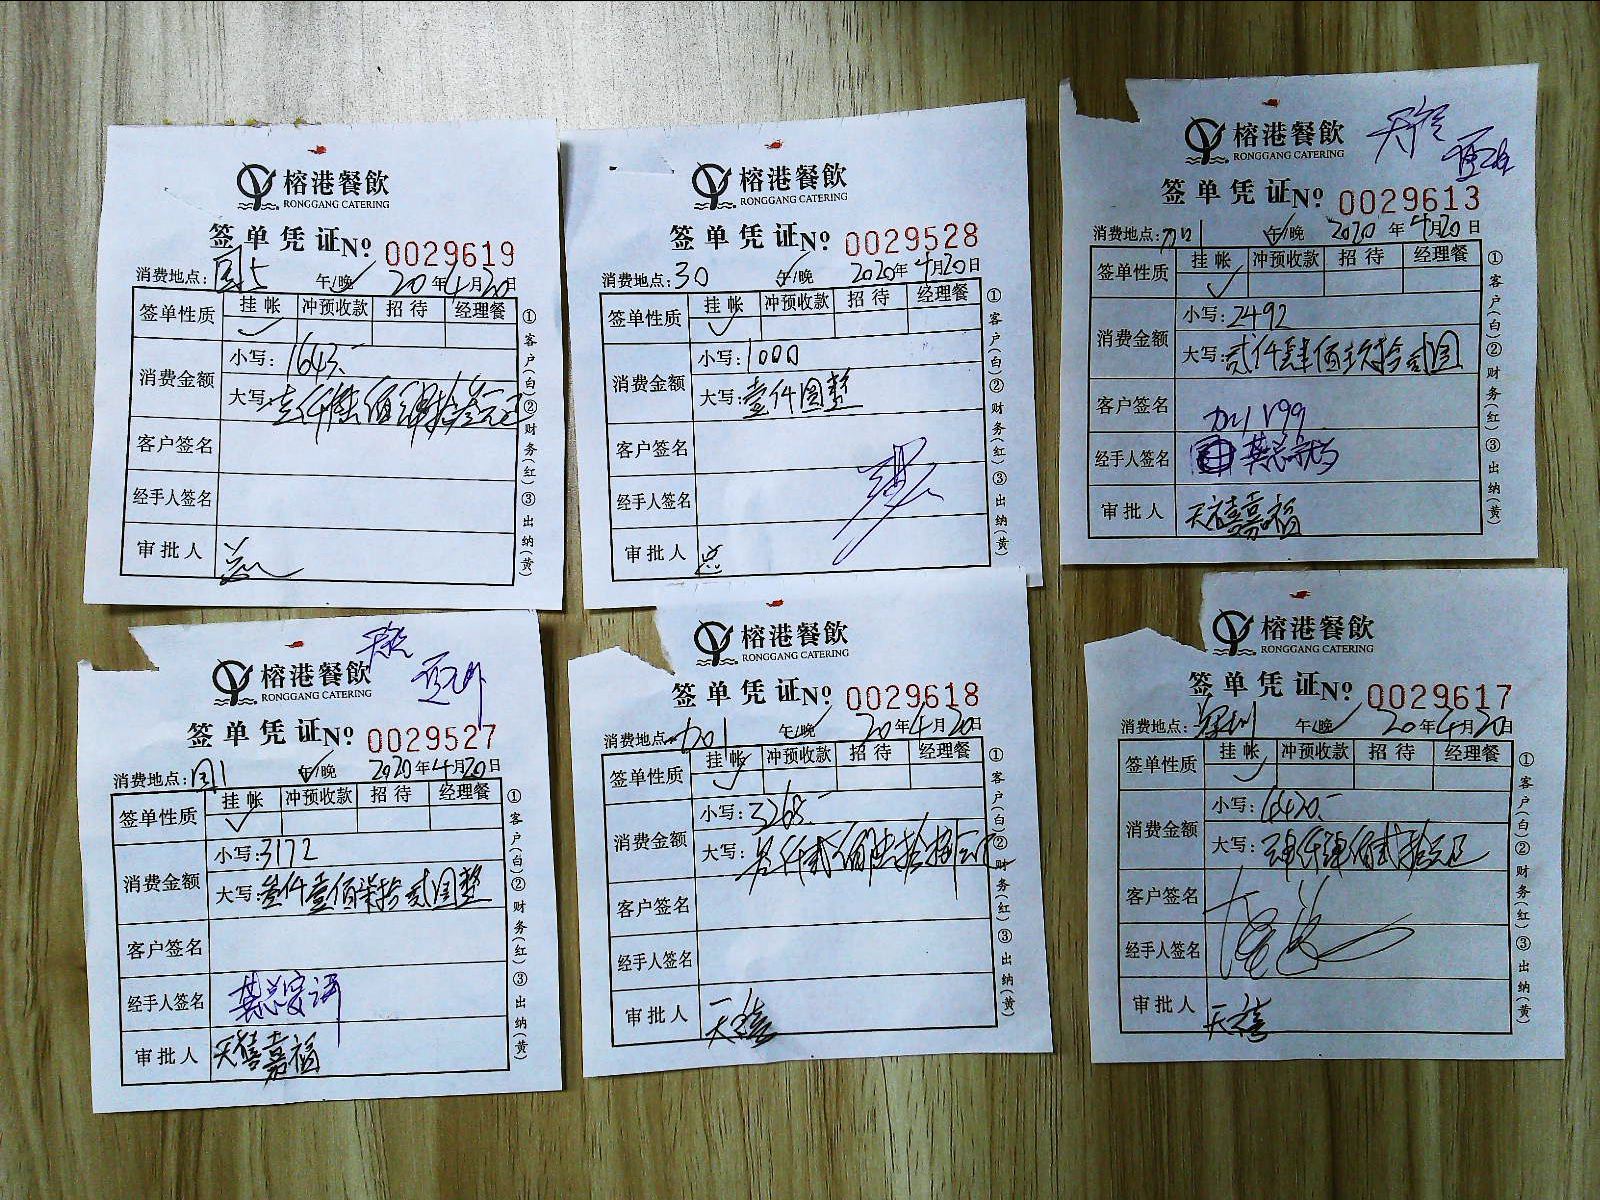 榕港餐飲
RONGGANG CATERING
签单凭证 No 0029619
消费地点: 午/晚 20年4月20日
签单性质 挂帐 冲预收款 招待 经理餐
✓
消费金额 小写: 1643.-
大写: 壹仟陆佰肆拾叁元正
客户签名
经手人签名
审批人
①客户(白)②财务(红)③出纳(黄)
榕港餐飲
RONGGANG CATERING
签单凭证 No 0029528
消费地点: 30 午/晚 2020年4月20日
签单性质 挂帐 冲预收款 招待 经理餐
✓
消费金额 小写: 1000
大写: 壹仟圆整
客户签名
经手人签名
审批人
①客户(白)②财务(红)③出纳(黄)
榕港餐飲
RONGGANG CATERING
签单凭证 No 0029613
消费地点: 午/晚 2020年4月20日
签单性质 挂帐 冲预收款 招待 经理餐
✓
消费金额 小写: 2492
大写: 贰仟肆佰玖拾贰圆
客户签名
经手人签名
审批人 天禧嘉福
①客户(白)②财务(红)③出纳(黄)
榕港餐飲
RONGGANG CATERING
签单凭证 No 0029527
消费地点: 午/晚 2020年4月20日
签单性质 挂帐 冲预收款 招待 经理餐
✓
消费金额 小写: 3172
大写: 叁仟壹佰柒拾贰圆整
客户签名
经手人签名
审批人 天禧嘉福
①客户(白)②财务(红)③出纳(黄)
榕港餐飲
RONGGANG CATERING
签单凭证 No 0029618
消费地点: 午/晚 20年4月20日
签单性质 挂帐 冲预收款 招待 经理餐
✓
消费金额 小写: 3268.-
大写: 叁仟贰佰陆拾捌元正
客户签名
经手人签名
审批人 天禧
①客户(白)②财务(红)③出纳(黄)
榕港餐飲
RONGGANG CATERING
签单凭证 No 0029617
消费地点: 深圳 午/晚 20年4月20日
签单性质 挂帐 冲预收款 招待 经理餐
✓
消费金额 小写: 4420.-
大写: 肆仟肆佰贰拾元正
客户签名
经手人签名
审批人 天禧
①客户(白)②财务(红)③出纳(黄)